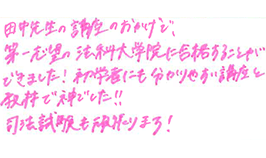 田中先生の講座のおかげで、
第一志望の法科大学院に合格することが
できました！初学者にも分かりやすい講座と
教材で神でした!!
司法試験も頑張ります！